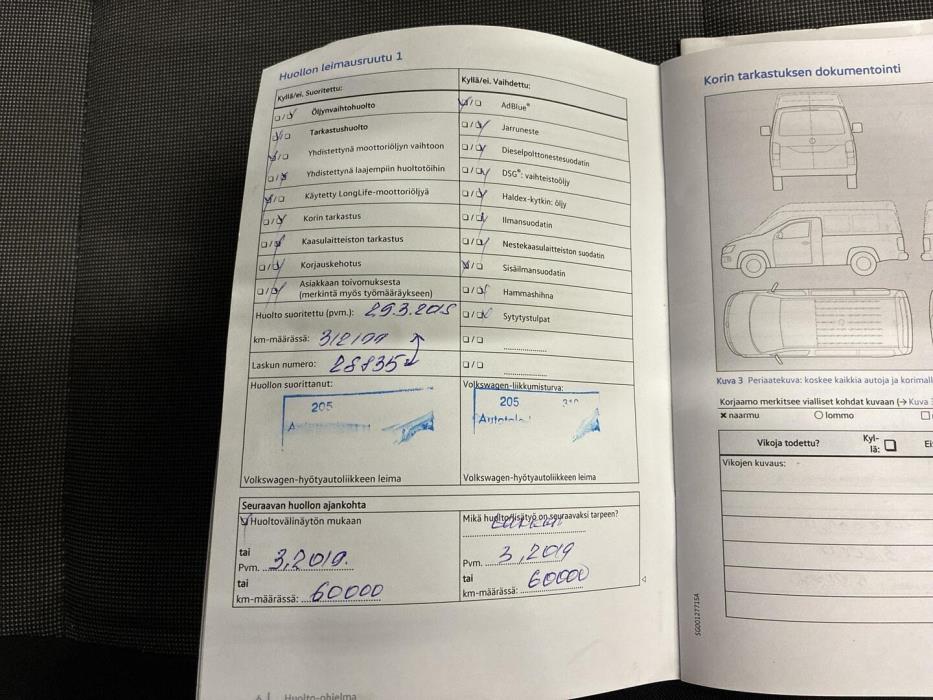 Huollon leimausruutu 1
Kyllä/ei. Suoritettu:
Öljynvaihtohuolto
Tarkastushuolto
Yhdistettynä moottoriöljyn vaihtoon
Yhdistettynä laajempiin huoltotöihin
Käytetty LongLife-moottoriöljyä
Korin tarkastus
Kaasulaitteiston tarkastus
Korjauskehotus
Asiakkaan toivomuksesta
(merkintä myös työmääräykseen)
Huolto suoritettu (pvm.):
km-määrässä:
Laskun numero: 28835
Huollon suorittanut:
205
Volkswagen-hyötyautoliikkeen leima
Kyllä/ei. Vaihdettu:
AdBlue®
Jarruneste
Dieselpolttonestesuodatin
DSG®: vaihteistoöljy
Haldex-kytkin: öljy
Ilmansuodatin
Nestekaasulaitteiston suodatin
Sisäilmansuodatin
Hammashihna
Sytytystulpat
Volkswagen-liikkumisturva:
205
Volkswagen-hyötyautoliikkeen leima
Seuraavan huollon ajankohta
Huoltovälinäytön mukaan
tai
Pvm. 3,2019.
tai
km-määrässä: 60000
Mikä huolto/lisätyö on seuraavaksi tarpeen?
Pvm. 3,2019
tai
km-määrässä: 60000
6 | Huolto-ohjelma
Korin tarkastuksen dokumentointi
Kuva 3 Periaatekuva: koskee kaikkia autoja ja
Korjaamo merkitsee vialliset kohdat kuvaan (→ Kuva 3
naarmu
lommo
Vikoja todettu?
Kyl-
lä:
Vikojen kuvaus:
SG00127715A